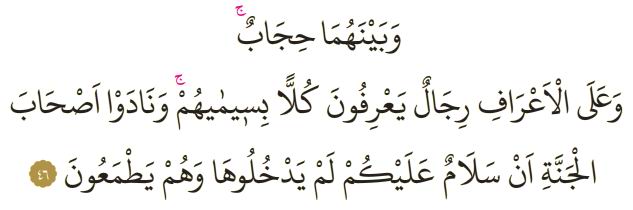 وَبَيْنَهُمَا حِجَابٌۚ
وَعَلَى الْاَعْرَافِ رِجَالٌ يَعْرِفُونَ كُلًّا بِسٖيمٰيهُمْۚ وَنَادَوْا اَصْحَابَ
الْجَنَّةِ اَنْ سَلَامٌ عَلَيْكُمْ لَمْ يَدْخُلُوهَا وَهُمْ يَطْمَعُونَ ٤٦